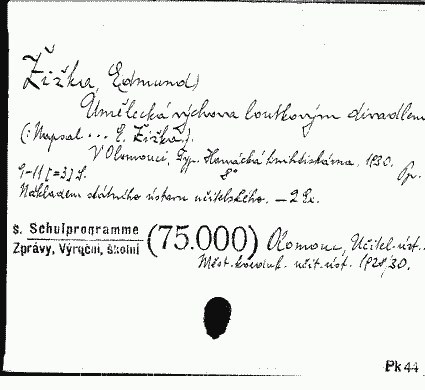 Žižka, Edmund)
Umělecká výchova loutkovým divadlem
(: Napsal ... E. Žižka.).
V Olomouci, Typ. Hanácká knihtiskárna. 1930.
9-11 [=3] S. 8° Pp.
Nákladem státního ústavu učitelského. – 2 Ex.
s. Schulprogramme (75.000) Olomouc, Učitel. úst.
Zprávy, Výroční, školní
Měst. koeduk. učit. úst. 1928/30.
Pk 44